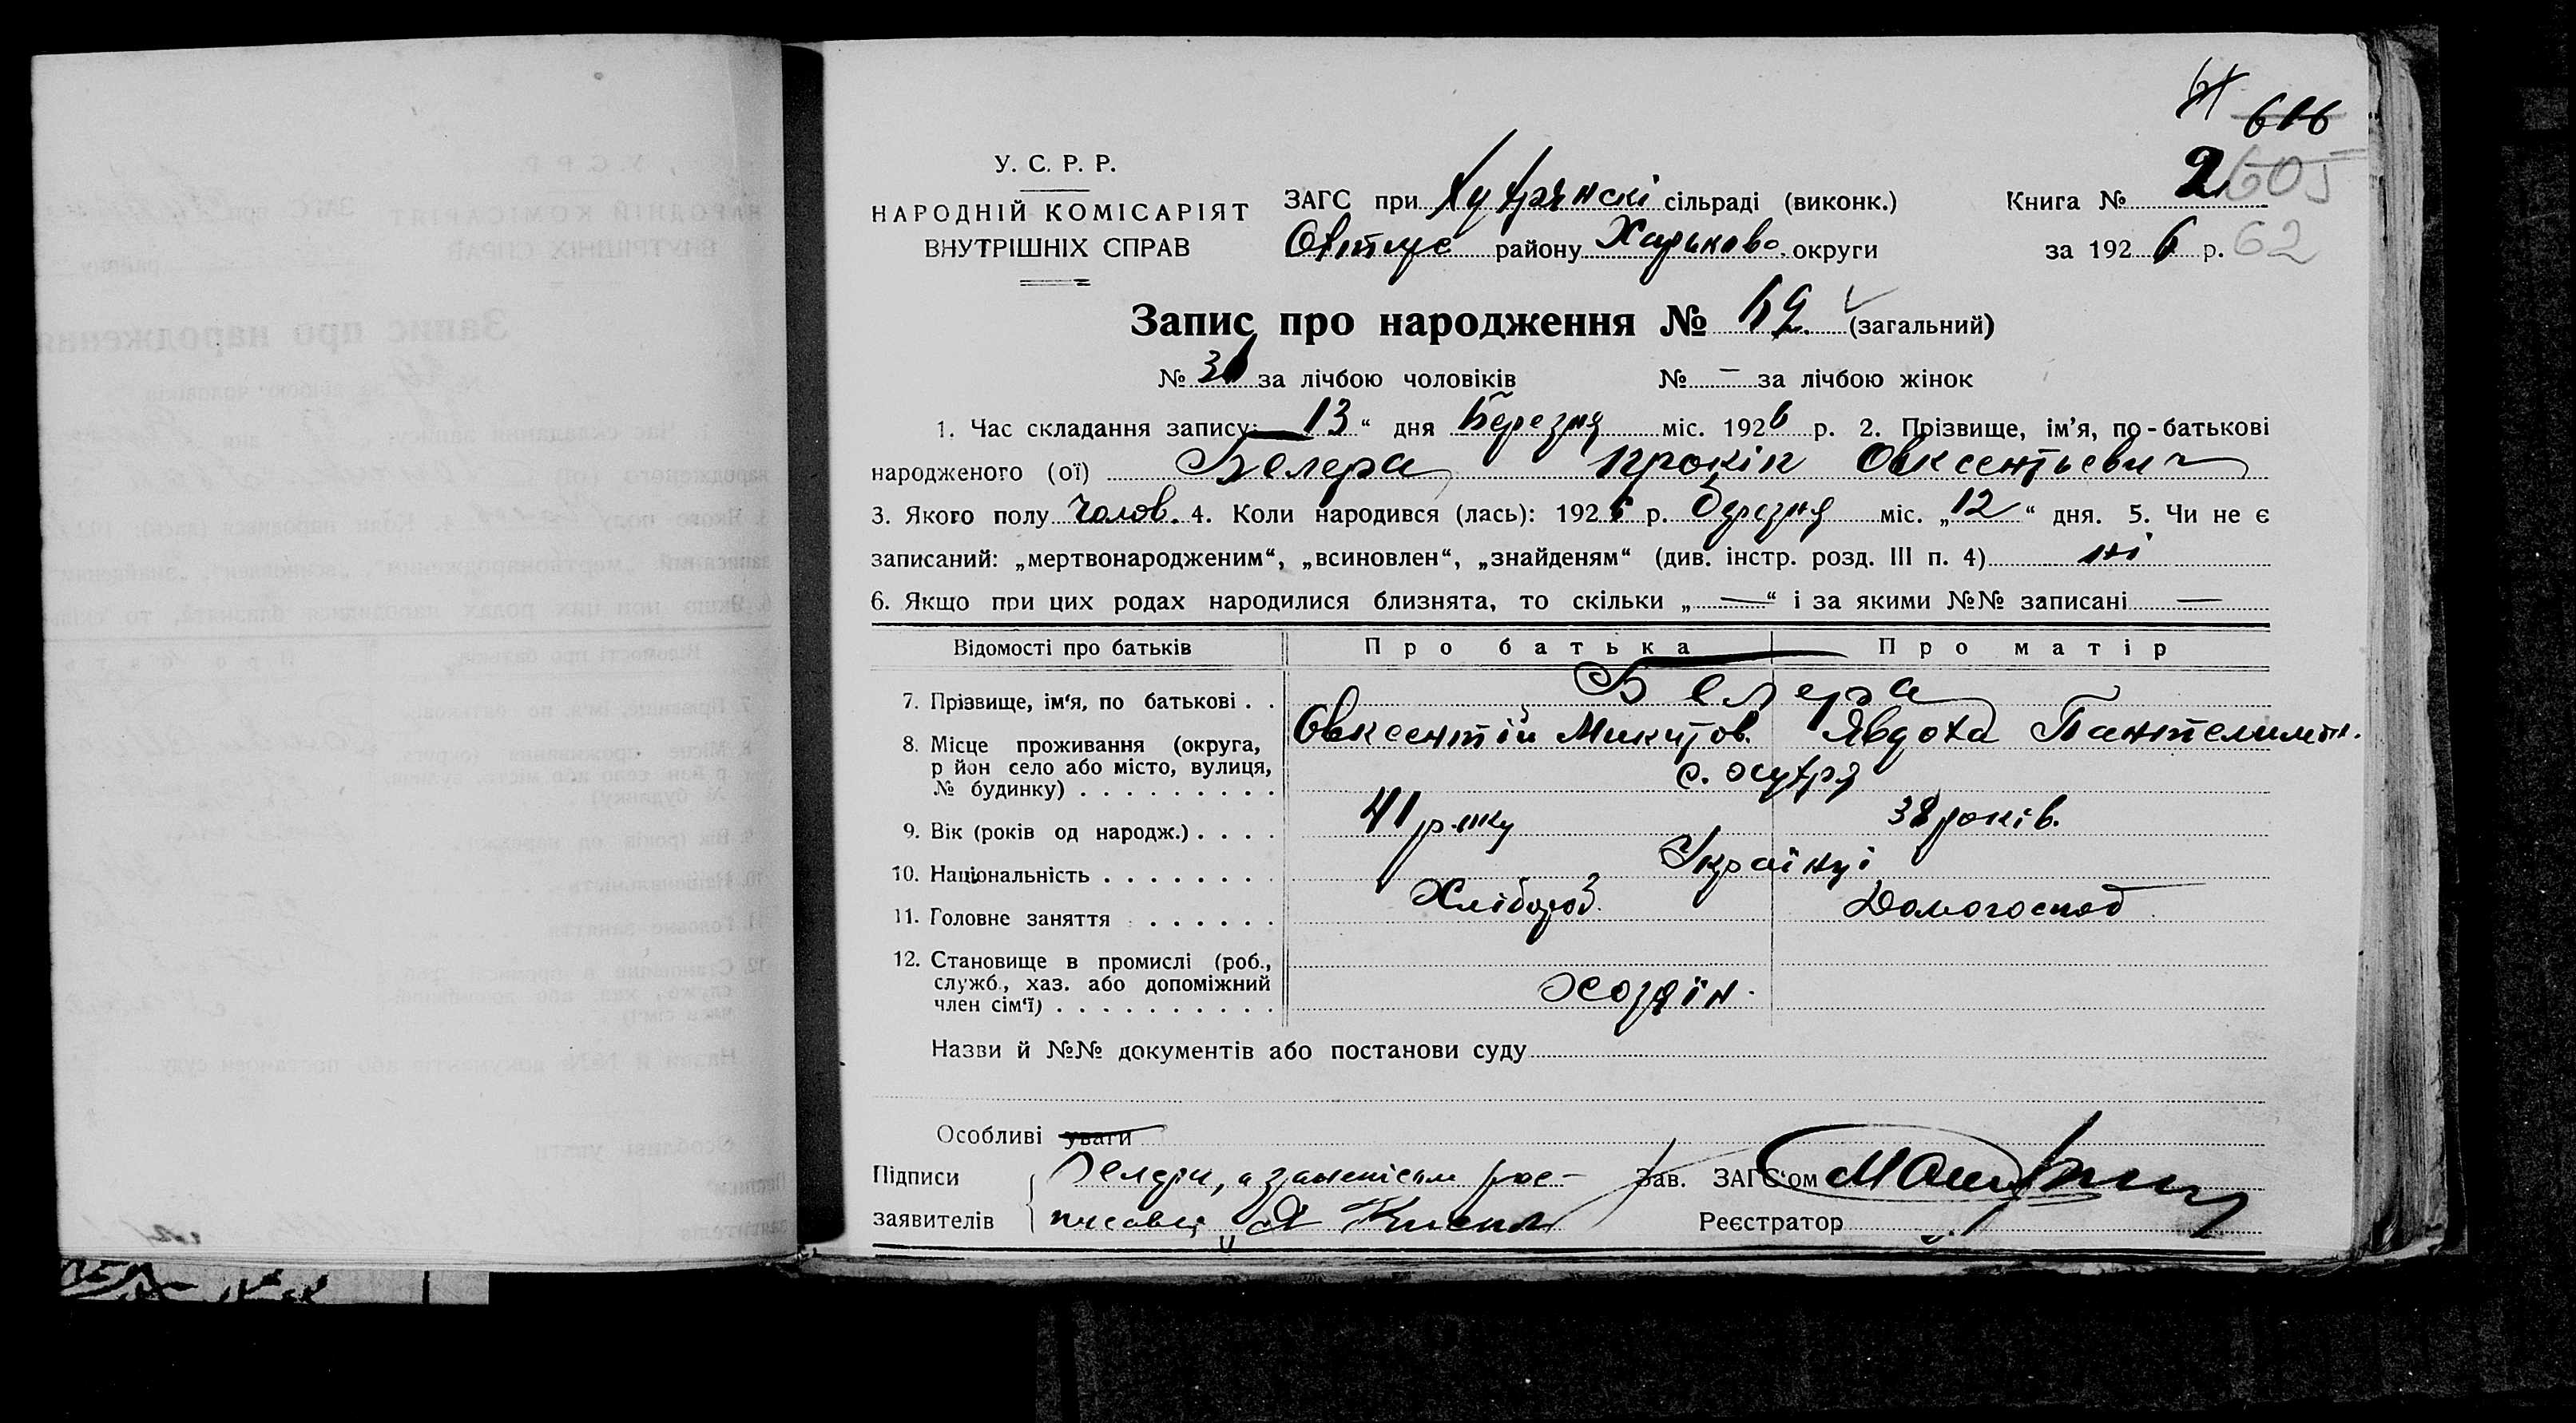 606
У. С. Р. Р.
НАРОДНІЙ КОМІСАРІЯТ
ВНУТРІШНІХ СПРАВ
ЗАГС при сільраді (виконк.)
району Харьково округи
Книга № 2 605
за 1926 р. 62
Запис про народження № 62 (загальний)
№ 31 за лічбою чоловіків № — за лічбою жінок
1. Час складання запису: 13 “ дня Березня міс. 1926 р. 2. Прізвище, ім’я, по-батькові
народженого (ої) Белера Прокіп Овксентьевич
3. Якого полу Чолов. 4. Коли народився (лась): 1926 р. Березня міс. „ 12 “ дня. 5. Чи не є
записаний: „мертвонародженим“, „всиновлен“, „знайденям“ (див. інстр. розд. III п. 4) ні
6. Якщо при цих родах народилися близнята, то скільки „ — “ і за якими №№ записані —
Відомості про батьків Про батька Про матір
7. Прізвище, ім‘я, по батькові . . Белера
Овксентій Микитов. Явдоха Пантелимон.
8. Місце проживання (округа,
р йон село або місто, вулиця,
№ будинку) . . . . . . . . . с. Хухря
9. Вік (років од народж.) . . . . 41 року 38 років.
10. Національність . . . . . . . . Українці
11. Головне заняття . . . . . . Хлібороб. Домогоспод
12. Становище в промислі (роб.,
служб., хаз. або допоміжний
член сім‘ї) . . . . . . . . . . Хозяін.
Назви й №№ документів або постанови суду
Особливі уваги
Підписи Зав. ЗАГС‘ом
заявителів Реєстратор